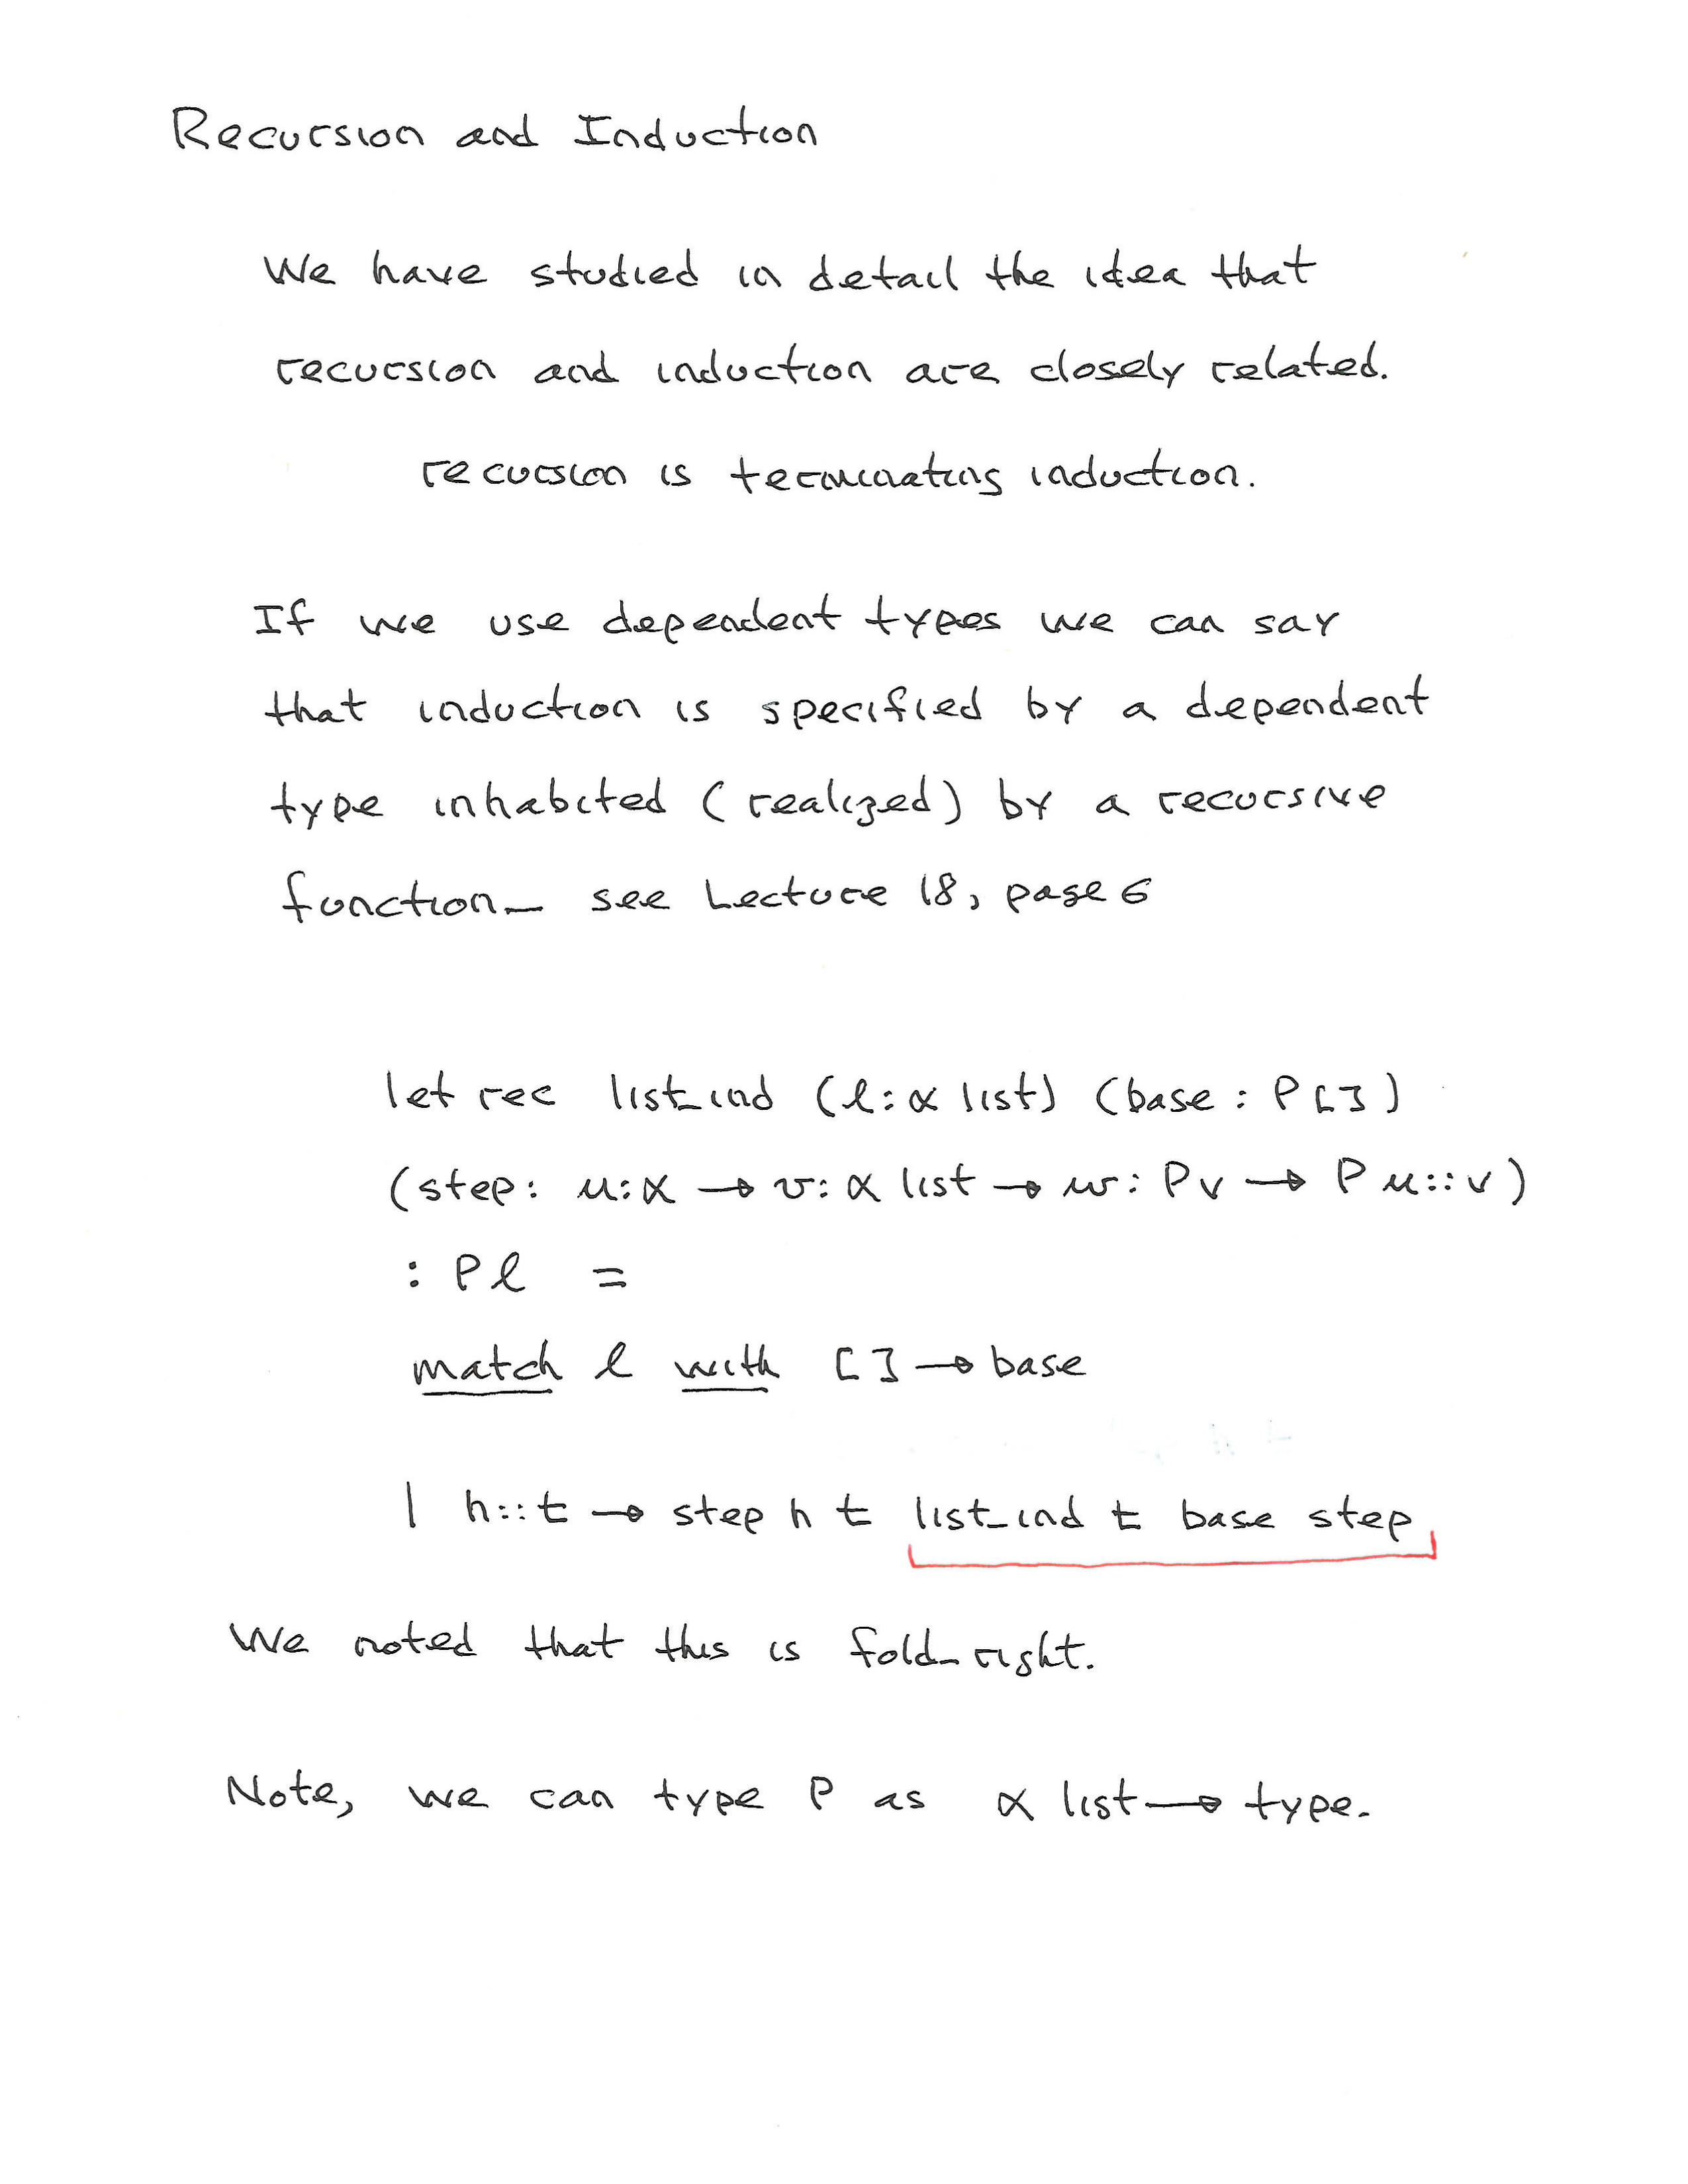 Recursion and Induction
We have studied in detail the idea that
recursion and induction are closely related.
recursion is terminating induction.
If we use dependent types we can say
that induction is specified by a dependent
type inhabited (realized) by a recursive
function_ see Lecture 18, page 6
let rec list_ind (l:α list) (base : P[])
(step: u:α → v: α list → w: Pv → P u::v)
: Pl =
match l with [] → base
| h::t → step h t list_ind t base step
We noted that this is fold_right.
Note, we can type P as α list → type.